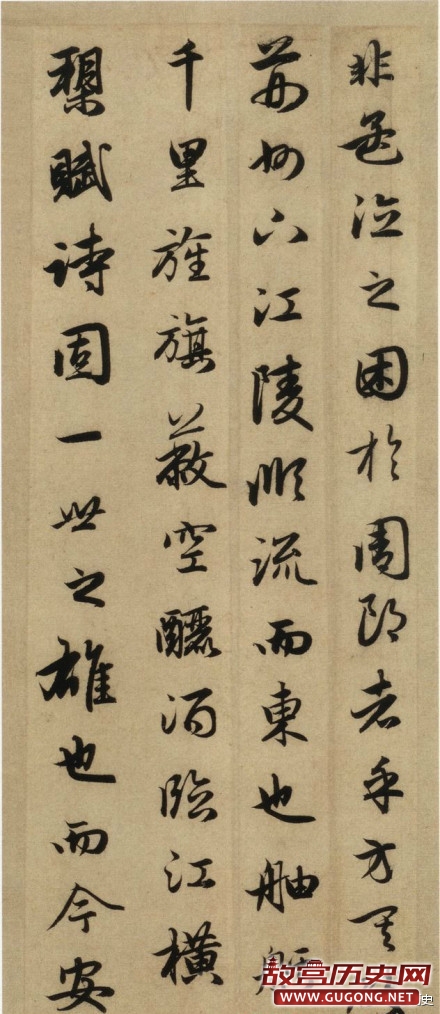 非孟德之困於周郎者乎方其
荊州下江陵順流而東也舳艫
千里旌旗蔽空釃酒臨江橫
槊賦詩固一世之雄也而今安
故宫历史网
WWW.GUGONG.NET
史